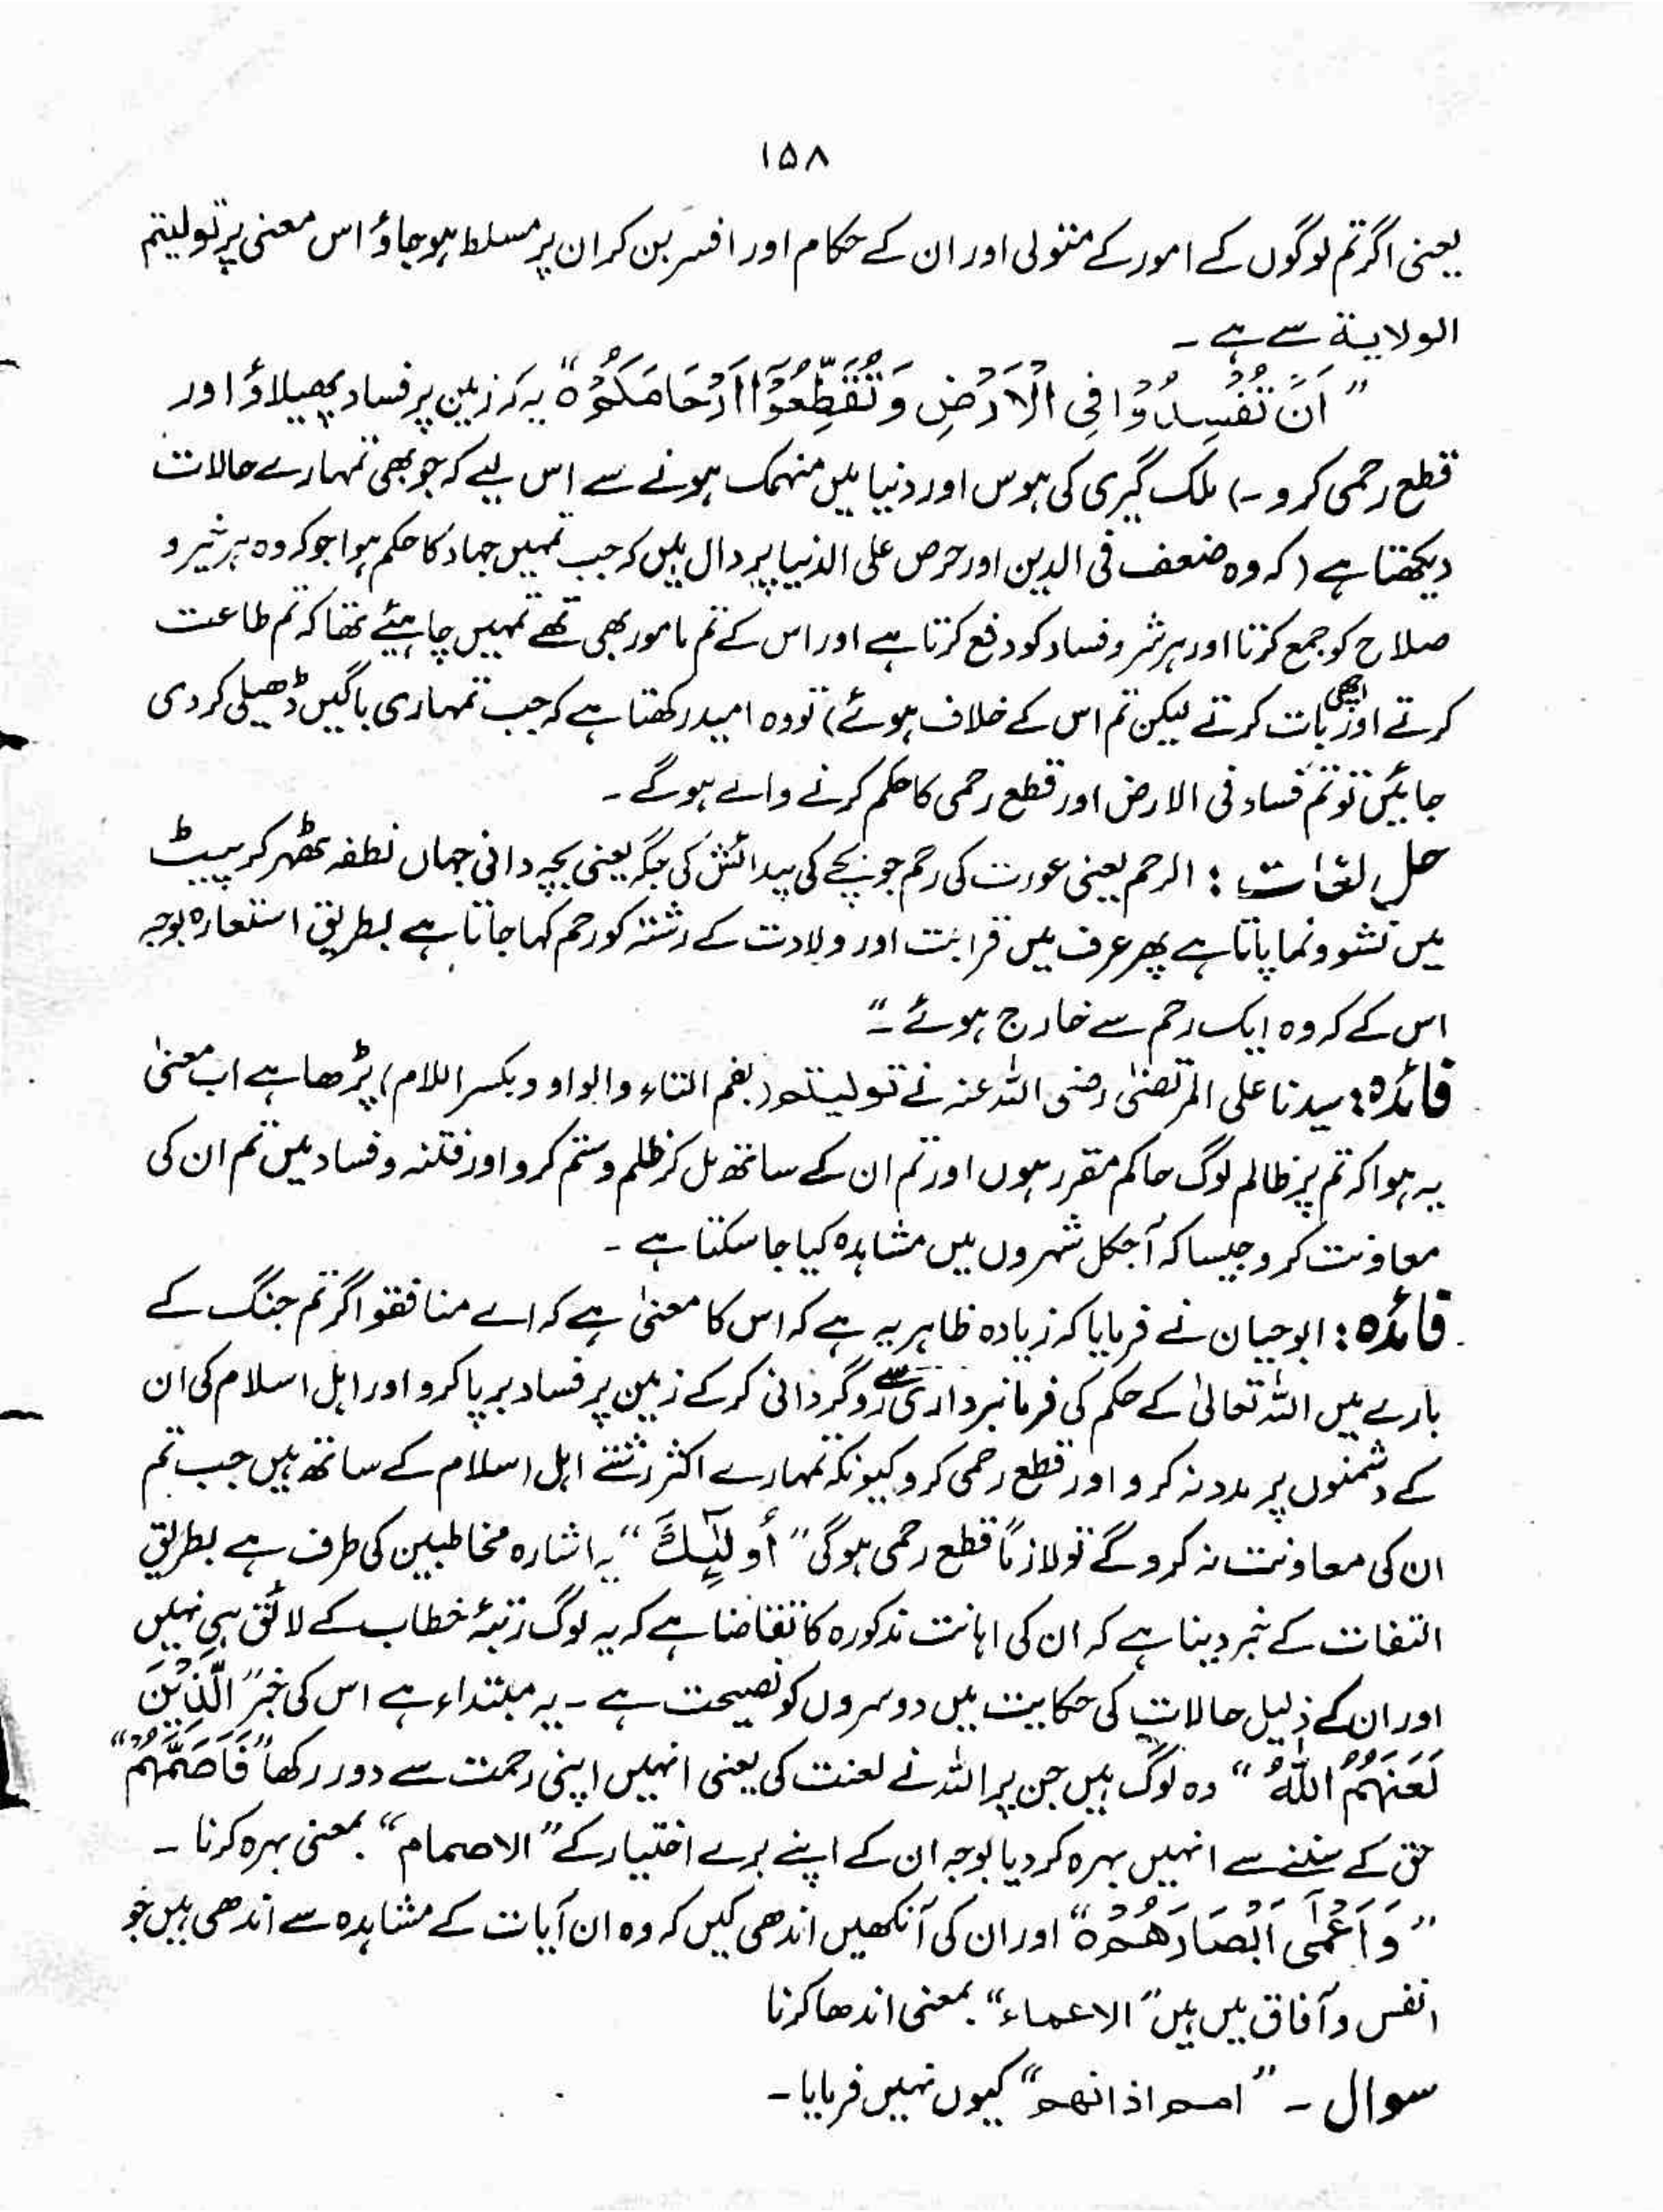 ۱۵۸
یعنی اگر تم لوگوں کے امور کے متولی اور ان کے حکام اور افسر بن کر ان پر مسلط ہو جاؤ اس معنی پر تولیتم
الولایۃ سے ہے ۔
” اَنْ تُفْسِدُوْا فِی الْاَرْضِ وَ تُقَطِّعُوْٓا اَرْحَامَکُمْ ہ “ یہ کہ زمین پر فساد پھیلاؤ اور
قطع رحمی کرو ۔) ملک گیری کی ہوس اور دنیا میں منہمک ہونے سے اس لیے کہ جو بھی تمہارے حالات
دیکھتا ہے (کہ وہ ضعف فی الدین اور حرص علی الدنیا پر دال ہیں کہ جب تمہیں جہاد کا حکم ہوا جو کہ وہ ہر خیر و
صلاح کو جمع کرتا اور ہر شر و فساد کو دفع کرتا ہے اور اس کے تم مامور بھی تھے تمہیں چاہیئے تھا کہ تم طاعت
کرتے اور اچھی بات کرتے لیکن تم اس کے خلاف ہوئے) تو وہ امید رکھتا ہے کہ جب تمہاری باگیں ڈھیلی کر دی
جائیں تو تم فساد فی الارض اور قطع رحمی کا حکم کرنے والے ہو گے ۔
حل لغات : الرحم یعنی عورت کی رحم جو بچے کی پیدائش کی جگہ یعنی بچہ دانی جہاں نطفہ ٹھہر کر پیٹ
میں نشو و نما پاتا ہے پھر عرف میں قرابت اور ولادت کے رشتہ کو رحم کہا جاتا ہے بطریق استعارہ بوجہ
اس کے کہ وہ ایک رحم سے خارج ہوئے ۔“
فائدہ : سیدنا علی المرتضیٰ رضی اللہ عنہ نے تولیتم (بضم التاء والواو و بکسر اللام) پڑھا ہے اب معنیٰ
یہ ہوا کہ تم پر ظالم لوگ حاکم مقرر ہوں اور تم ان کے ساتھ مل کر ظلم و ستم کرو اور فتنہ و فساد میں تم ان کی
معاونت کرو جیسا کہ آجکل شہروں میں مشاہدہ کیا جا سکتا ہے ۔
فائدہ : ابو حیان نے فرمایا کہ زیادہ ظاہر یہ ہے کہ اس کا معنیٰ ہے کہ اے منافقو اگر تم جنگ کے
بارے میں اللہ تعالیٰ کے حکم کی فرمانبرداری سے روگردانی کر کے زمین پر فساد برپا کرو اور اہل اسلام کی ان
کے دشمنوں پر مدد نہ کرو اور قطع رحمی کرو کیونکہ تمہارے اکثر رشتے اہل اسلام کے ساتھ ہیں جب تم
ان کی معاونت نہ کرو گے تو لازماً قطع رحمی ہوگی ” أُولٰٓئِكَ “ یہ اشارہ مخاطبین کی طرف ہے بطریق
التفات کے خبر دینا ہے کہ ان کی اہانت مذکورہ کا تقاضا ہے کہ یہ لوگ رتبۂ خطاب کے لائق ہی نہیں
اور ان کے ذلیل حالات کی حکایت میں دوسروں کو نصیحت ہے ۔ یہ مبتداء ہے اس کی خبر ” الَّذِیْنَ
لَعَنَہُمُ اللہُ “ وہ لوگ ہیں جن پر اللہ نے لعنت کی یعنی انہیں اپنی رحمت سے دور رکھا ” فَاَصَمَّہُمْ “
حق کے سننے سے انہیں بہرہ کر دیا بوجہ ان کے اپنے برے اختیار کے ” الاصمام “ بمعنی بہرہ کرنا ۔
” وَ اَعْمٰٓی اَبْصَارَھُمْ ہ “ اور ان کی آنکھیں اندھی کیں کہ وہ ان آیات کے مشاہدہ سے اندھی ہیں جو
انفس و آفاق میں ہیں ” الاعماء “ بمعنی اندھا کرنا
سوال ۔ ” اصم اذانھم “ کیوں نہیں فرمایا ۔